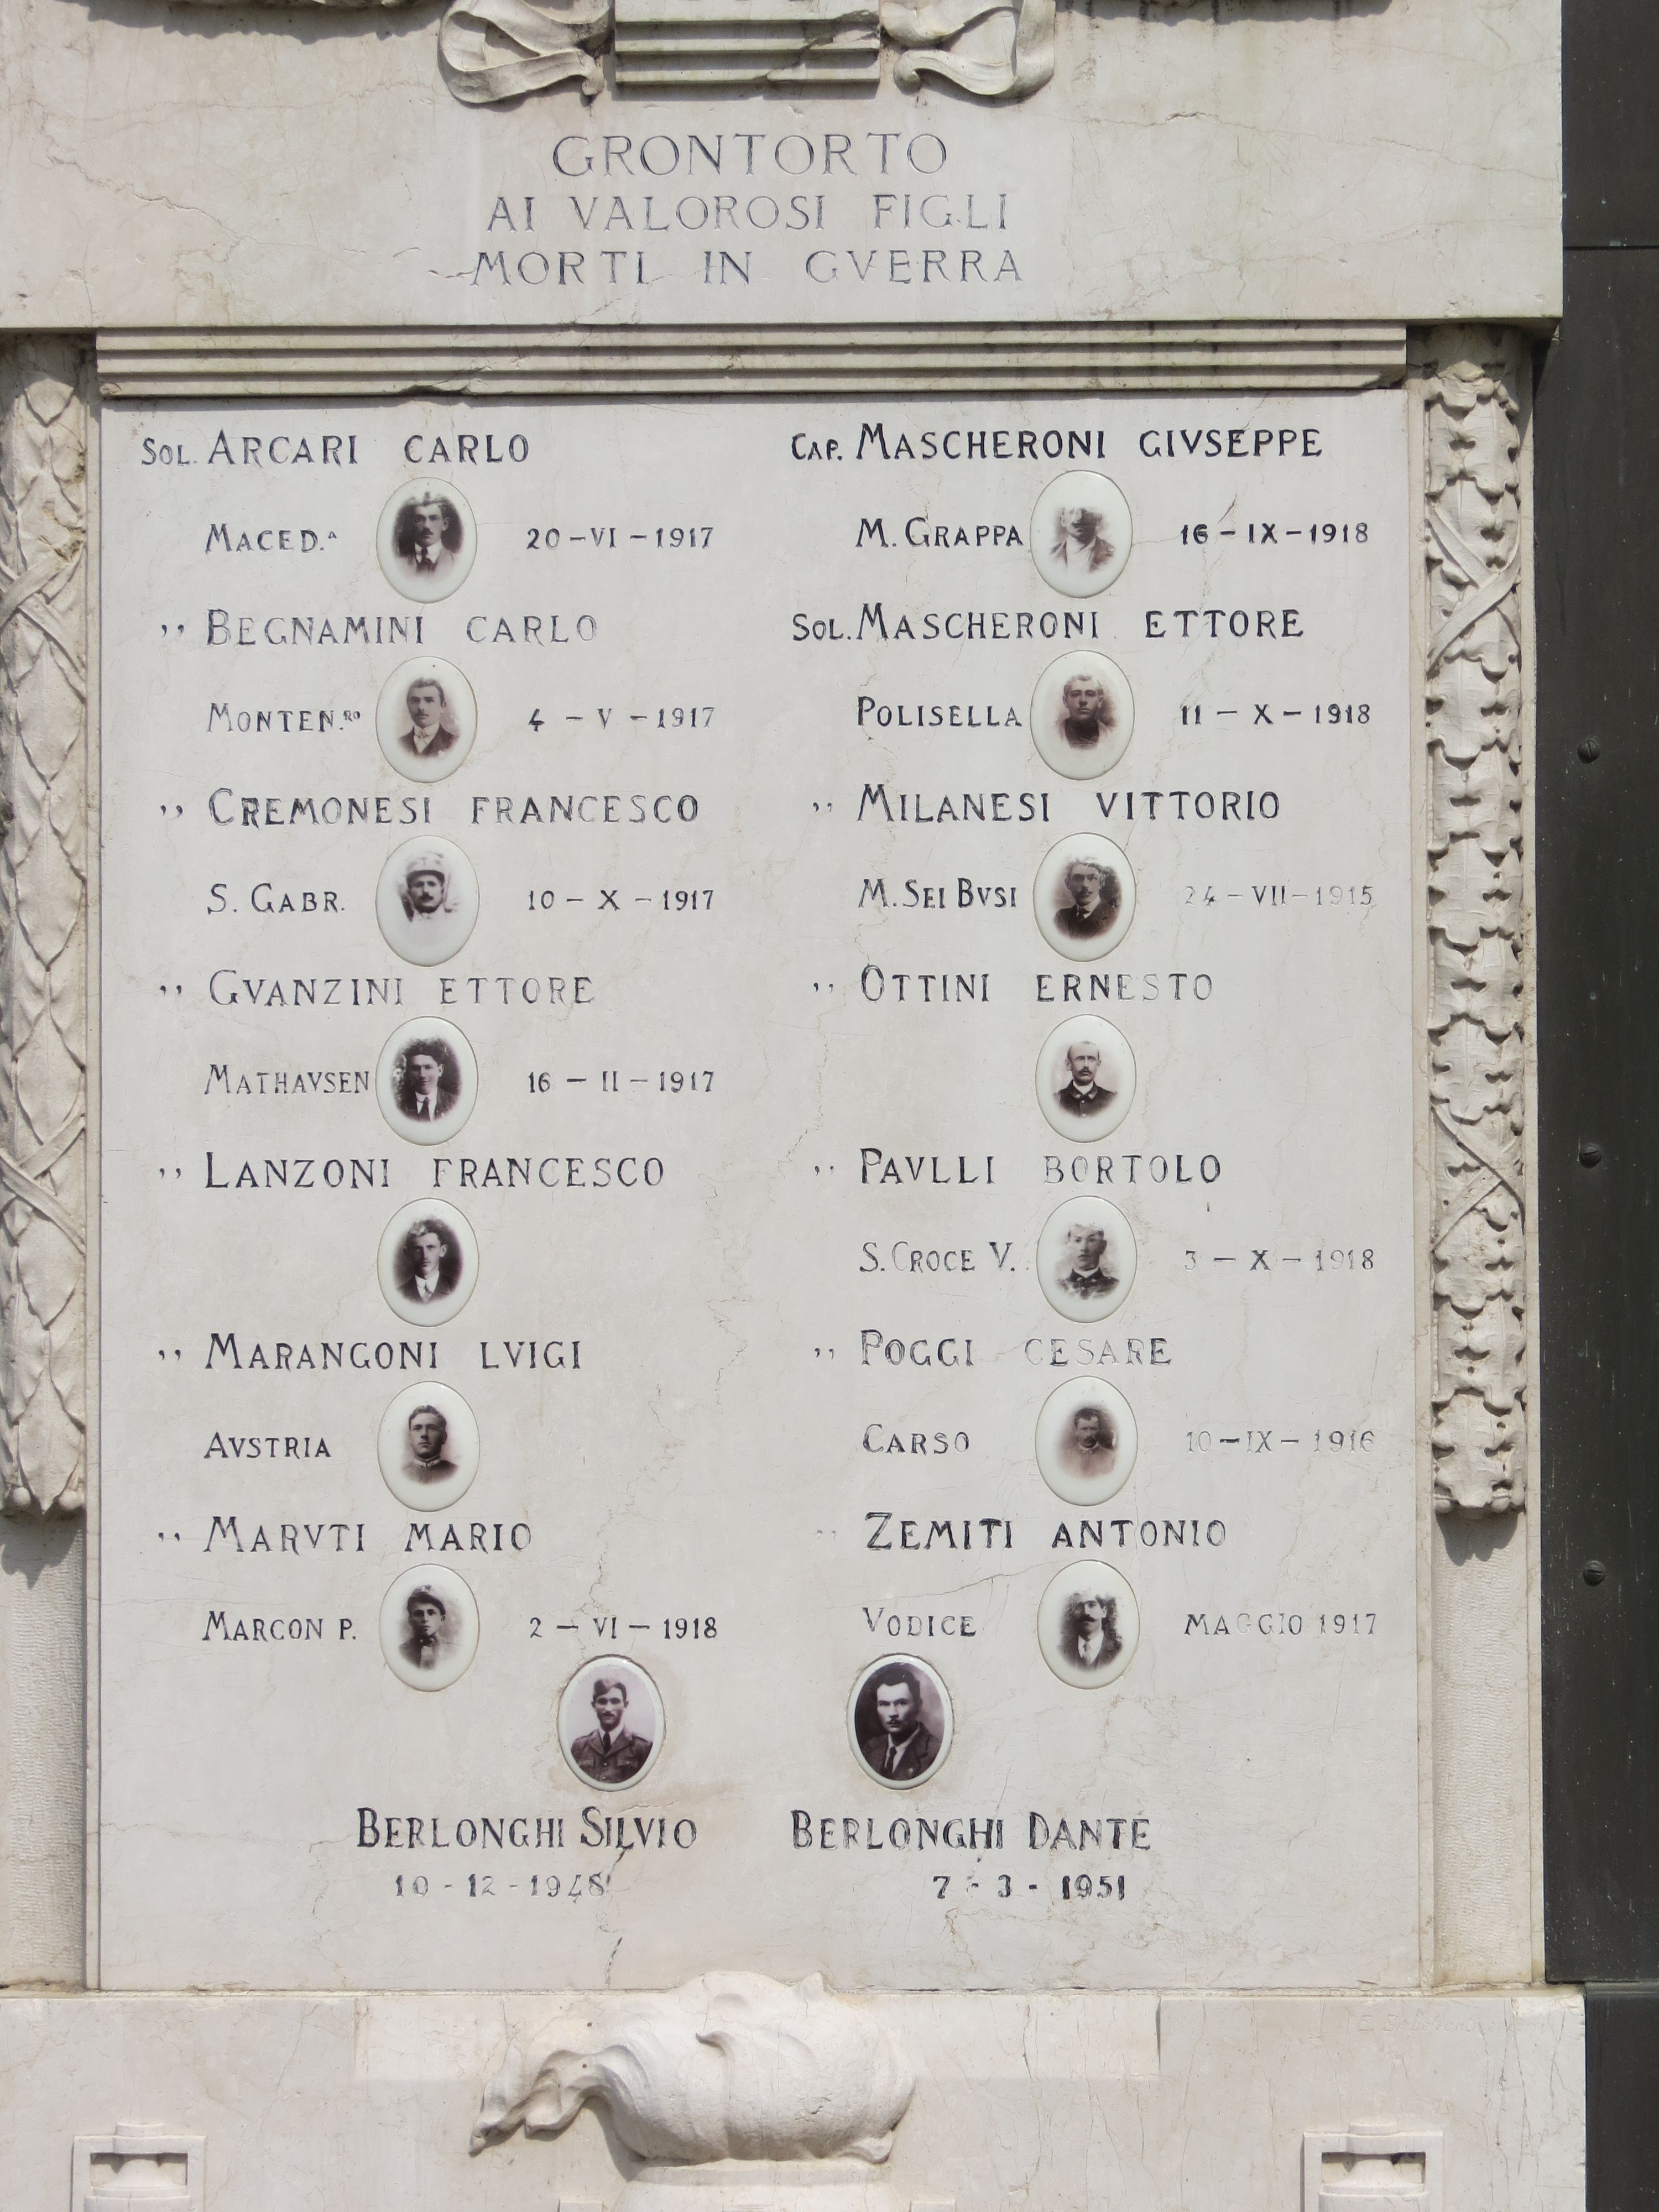 GRONTORTO
AI VALOROSI FIGLI
MORTI IN GVERRA
SOL. ARCARI CARLO
MACED.ᴬ 20-VI-1917
,, BEGNAMINI CARLO
MONTEN.ᴿᴼ 4-V-1917
,, CREMONESI FRANCESCO
S. GABR. 10-X-1917
,, GVANZINI ETTORE
MATHAVSEN 16-II-1917
,, LANZONI FRANCESCO
,, MARANGONI LVIGI
AVSTRIA
,, MARVTI MARIO
MARCON P. 2-VI-1918
CAP. MASCHERONI GIVSEPPE
M. GRAPPA 16-IX-1918
SOL. MASCHERONI ETTORE
POLISELLA 11-X-1918
,, MILANESI VITTORIO
M. SEI BVSI 24-VII-1915
,, OTTINI ERNESTO
,, PAVLLI BORTOLO
S. CROCE V. 3-X-1918
,, POGGI CESARE
CARSO 10-IX-1916
,, ZEMITI ANTONIO
VODICE MAGGIO 1917
BERLONGHI SILVIO
10-12-1948
BERLONGHI DANTE
7-3-1951